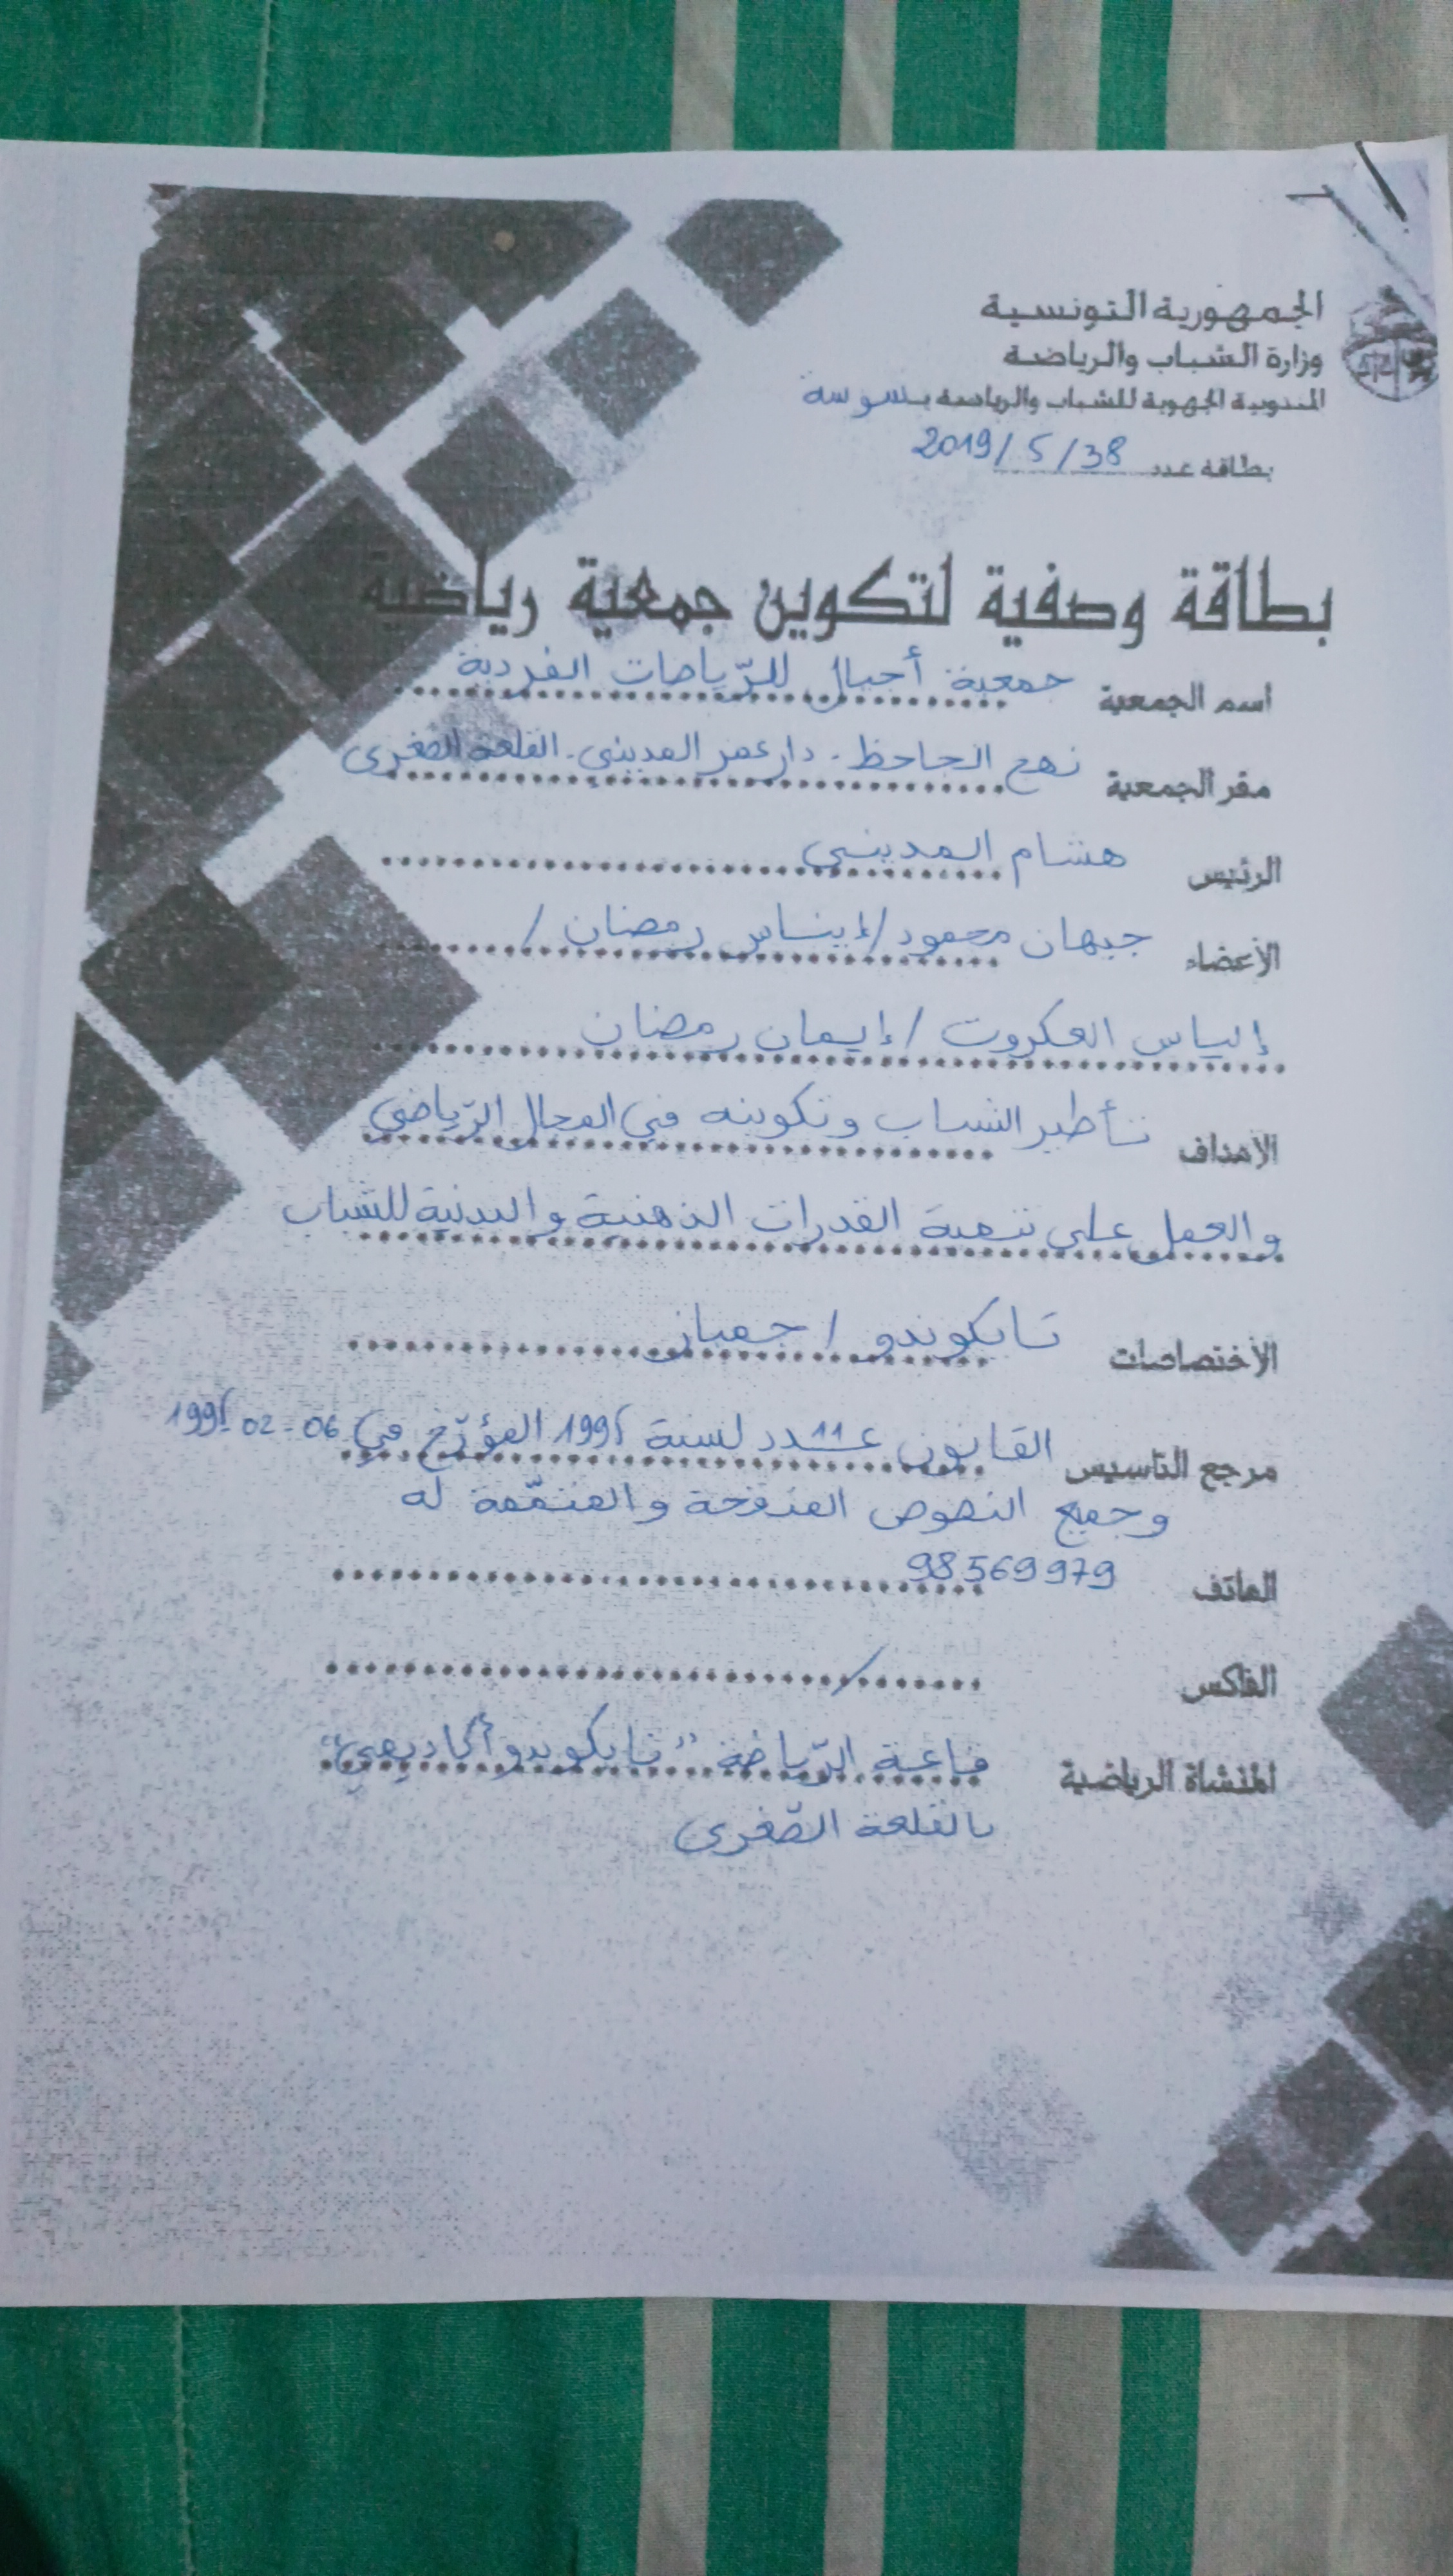 الجمهورية التونسية
وزارة الشباب والرياضة
المندوبية الجهوية للشباب والرياضة بسوسة
بطاقة عدد 38/5/2019
بطاقة وصفية لتكوين جمعية رياضية
اسم الجمعية جمعية أجيال للرّياضات الفردية
مقر الجمعية نهج الجاحظ - دار عمر المديني - القلعة الصغرى
الرئيس هشام المديني
الأعضاء جيهان محمود / إيناس رمضان /
إلياس العكروت / إيمان رمضان
الأهداف تأطير الشباب وتكوينه في المجال الرّياضي
والعمل على تنمية القدرات الذهنية والبدنية للشباب
الأختصاصات تايكوندو / جمباز
مرجع التأسيس القانون عـ11ـدد لسنة 1995 المؤرّخ في 06-02-1995
وجميع النصوص المنقحة والمتمّمة له
الهاتف 98569979
الفاكس /
المنشأة الرياضية قاعة الرّياضة "تايكوندو أكاديمي"
بالقلعة الصّغرى